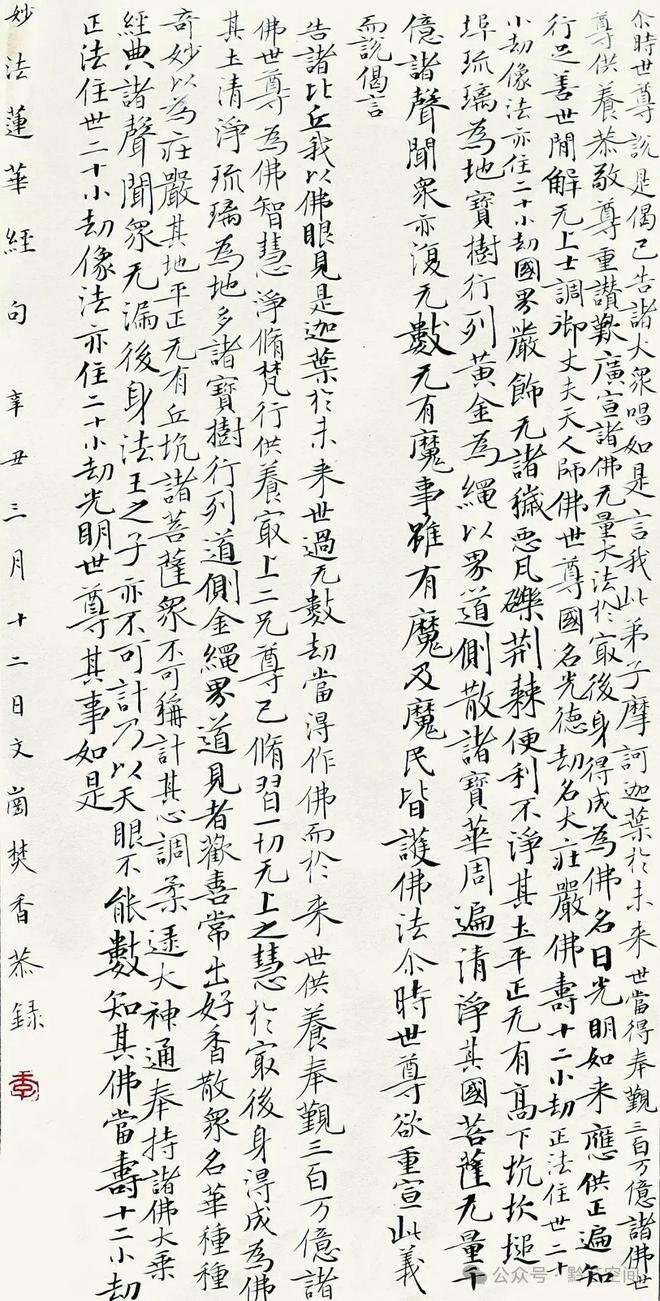 尒時世尊說是偈已告諸大衆唱如是言我此弟子摩訶迦葉於未来世當得奉覲三百万億諸佛世
尊供養恭敬尊重讚歎廣宣諸佛无量大法於㝡後身得成為佛名曰光明如来應供正遍知
行足善世閒解无上士調御丈夫天人師佛世尊國名光德劫名大莊嚴佛壽十二小劫正法住世二十
小劫像法亦住二十小劫國界嚴飾无諸穢惡瓦礫荆棘便利不淨其土平正无有高下坑坎堆
埠琉璃為地寶樹行列黄金為繩以界道側散諸寶華周遍清淨其國菩薩无量千
億諸聲聞衆亦復无數无有魔事雖有魔及魔民皆護佛法尒時世尊欲重宣此義
而說偈言
告諸比丘我以佛眼見是迦葉於未来世過无數劫當得作佛而於来世供養奉覲三百万億諸
佛世尊為佛智慧淨脩梵行供養㝡上二足尊已脩習一切无上之慧於㝡後身得成為佛
其土清淨琉璃為地多諸寶樹行列道側金繩界道見者歡喜常出好香散衆名華種種
奇妙以為莊嚴其地平正无有丘坑諸菩薩衆不可稱計其心調柔逮大神通奉持諸佛大乘
經典諸聲聞衆无漏後身法王之子亦不可計乃以天眼不能數知其佛當壽十二小劫
正法住世二十小劫像法亦住二十小劫光明世尊其事如是
妙法蓮華經句 辛丑三月十二日文崮焚香恭録
公众号·黔艺空间